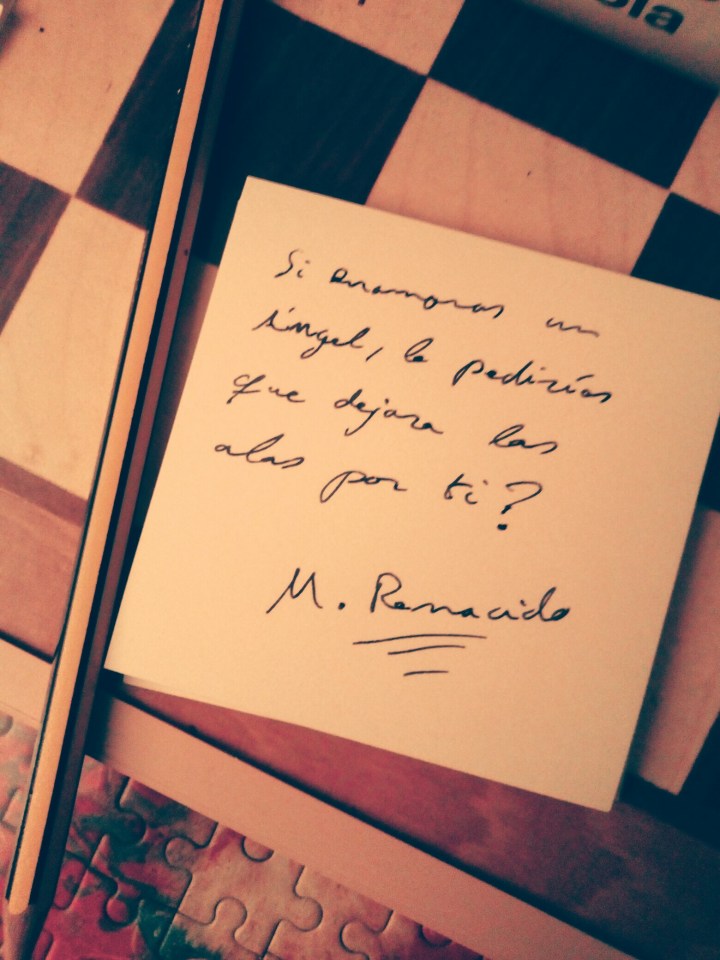 Si enamoras un
ángel, le pedirías
que dejara las
alas por ti?
M. Renacido